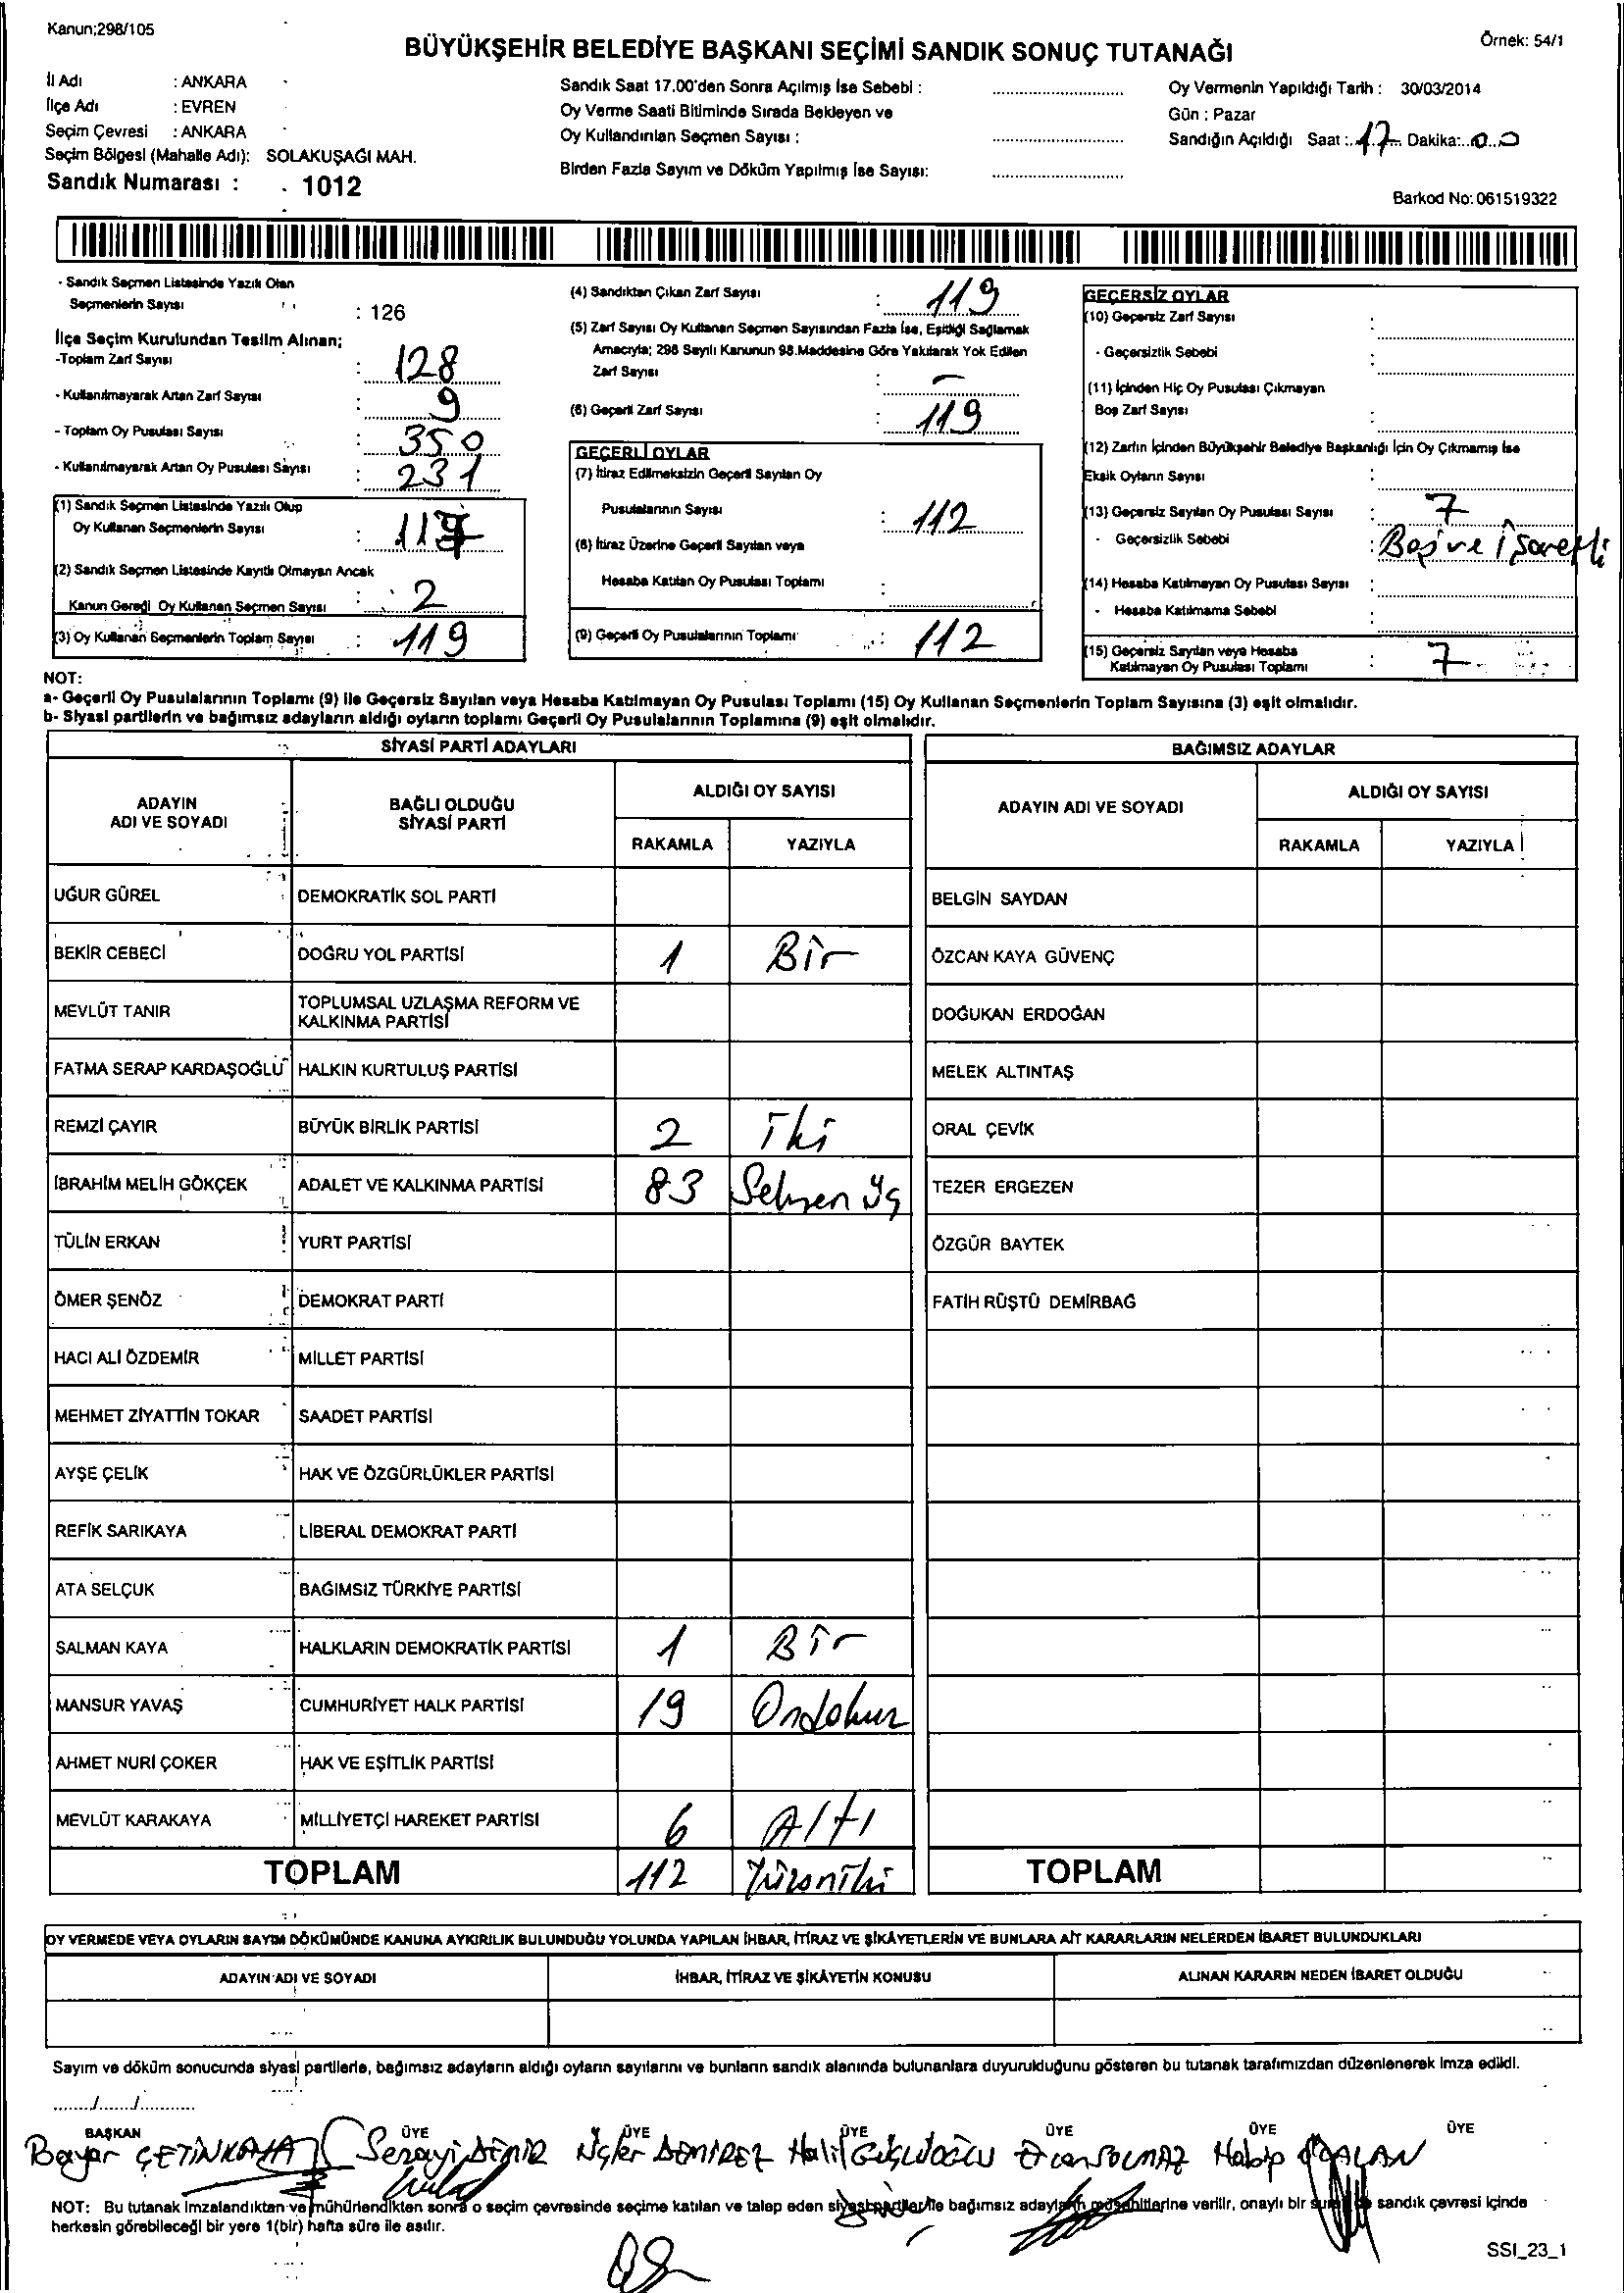 Kanun;298/105
Örnek: 54/1
BÜYÜKŞEHİR BELEDİYE BAŞKANI SEÇİMİ SANDIK SONUÇ TUTANAĞI
İl Adı : ANKARA
İlçe Adı : EVREN
Seçim Çevresi : ANKARA
Seçim Bölgesi (Mahalle Adı): SOLAKUŞAĞI MAH.
Sandık Numarası : 1012
Sandık Saat 17.00'den Sonra Açılmış İse Sebebi :
Oy Verme Saati Bitiminde Sırada Bekleyen ve
Oy Kullandırılan Seçmen Sayısı :
Birden Fazla Sayım ve Döküm Yapılmış İse Sayısı:
Oy Vermenin Yapıldığı Tarih : 30/03/2014
Gün : Pazar
Sandığın Açıldığı Saat : 17 Dakika: 00
Barkod No: 061519322
- Sandık Seçmen Listesinde Yazılı Olan
Seçmenlerin Sayısı : 126
İlçe Seçim Kurulundan Teslim Alınan;
-Toplam Zarf Sayısı : 128
- Kullanılmayarak Artan Zarf Sayısı : 9
- Toplam Oy Pusulası Sayısı : 350
- Kullanılmayarak Artan Oy Pusulası Sayısı : 231
(1) Sandık Seçmen Listesinde Yazılı Olup
Oy Kullanan Seçmenlerin Sayısı : 117
(2) Sandık Seçmen Listesinde Kayıtlı Olmayan Ancak
Kanun Gereği Oy Kullanan Seçmen Sayısı : 2
(3) Oy Kullanan Seçmenlerin Toplam Sayısı : 119
(4) Sandıktan Çıkan Zarf Sayısı : 119
(5) Zarf Sayısı Oy Kullanan Seçmen Sayısından Fazla İse, Eşitliği Sağlamak
Amacıyla; 298 Sayılı Kanunun 98.Maddesine Göre Yakılarak Yok Edilen
Zarf Sayısı : -
(6) Geçerli Zarf Sayısı : 119
GEÇERLİ OYLAR
(7) İtiraz Edilmeksizin Geçerli Sayılan Oy
Pusulalarının Sayısı : 112
(8) İtiraz Üzerine Geçerli Sayılan veya
Hesaba Katılan Oy Pusulası Toplamı :
(9) Geçerli Oy Pusulalarının Toplamı : 112
GEÇERSİZ OYLAR
(10) Geçersiz Zarf Sayısı :
- Geçersizlik Sebebi :
(11) İçinden Hiç Oy Pusulası Çıkmayan
Boş Zarf Sayısı :
(12) Zarfın İçinden Büyükşehir Belediye Başkanlığı İçin Oy Çıkmamış İse
Eksik Oyların Sayısı :
(13) Geçersiz Sayılan Oy Pusulası Sayısı : 7
- Geçersizlik Sebebi : Boş ve İşaretli
(14) Hesaba Katılmayan Oy Pusulası Sayısı :
- Hesaba Katılmama Sebebi :
(15) Geçersiz Sayılan veya Hesaba
Katılmayan Oy Pusulası Toplamı : 7
NOT:
a- Geçerli Oy Pusulalarının Toplamı (9) ile Geçersiz Sayılan veya Hesaba Katılmayan Oy Pusulası Toplamı (15) Oy Kullanan Seçmenlerin Toplam Sayısına (3) eşit olmalıdır.
b- Siyasi partilerin ve bağımsız adayların aldığı oyların toplamı Geçerli Oy Pusulalarının Toplamına (9) eşit olmalıdır.
SİYASİ PARTİ ADAYLARI
ADAYIN ADI VE SOYADI
BAĞLI OLDUĞU SİYASİ PARTİ
ALDIĞI OY SAYISI
RAKAMLA YAZIYLA
UĞUR GÜREL DEMOKRATİK SOL PARTİ
BEKİR CEBECİ DOĞRU YOL PARTİSİ 1 Bir
MEVLÜT TANIR TOPLUMSAL UZLAŞMA REFORM VE KALKINMA PARTİSİ
FATMA SERAP KARDAŞOĞLU HALKIN KURTULUŞ PARTİSİ
REMZİ ÇAYIR BÜYÜK BİRLİK PARTİSİ 2 İki
İBRAHİM MELİH GÖKÇEK ADALET VE KALKINMA PARTİSİ 83 Seksen Üç
TÜLİN ERKAN YURT PARTİSİ
ÖMER ŞENÖZ DEMOKRAT PARTİ
HACI ALİ ÖZDEMİR MİLLET PARTİSİ
MEHMET ZİYATTİN TOKAR SAADET PARTİSİ
AYŞE ÇELİK HAK VE ÖZGÜRLÜKLER PARTİSİ
REFİK SARIKAYA LİBERAL DEMOKRAT PARTİ
ATA SELÇUK BAĞIMSIZ TÜRKİYE PARTİSİ
SALMAN KAYA HALKLARIN DEMOKRATİK PARTİSİ 1 Bir
MANSUR YAVAŞ CUMHURİYET HALK PARTİSİ 19 Ondokuz
AHMET NURİ ÇOKER HAK VE EŞİTLİK PARTİSİ
MEVLÜT KARAKAYA MİLLİYETÇİ HAREKET PARTİSİ 6 Altı
TOPLAM 112 Yüzoniki
BAĞIMSIZ ADAYLAR
ADAYIN ADI VE SOYADI
ALDIĞI OY SAYISI
RAKAMLA YAZIYLA
BELGİN SAYDAN
ÖZCAN KAYA GÜVENÇ
DOĞUKAN ERDOĞAN
MELEK ALTINTAŞ
ORAL ÇEVİK
TEZER ERGEZEN
ÖZGÜR BAYTEK
FATİH RÜŞTÜ DEMİRBAĞ
TOPLAM
OY VERMEDE VEYA OYLARIN SAYIM DÖKÜMÜNDE KANUNA AYKIRILIK BULUNDUĞU YOLUNDA YAPILAN İHBAR, İTİRAZ VE ŞİKÂYETLERİN VE BUNLARA AİT KARARLARIN NELERDEN İBARET BULUNDUKLARI
ADAYIN ADI VE SOYADI İHBAR, İTİRAZ VE ŞİKÂYETİN KONUSU ALINAN KARARIN NEDEN İBARET OLDUĞU
Sayım ve döküm sonucunda siyasi partilerle, bağımsız adayların aldığı oyların sayılarını ve bunların sandık alanında bulunanlara duyurulduğunu gösteren bu tutanak tarafımızdan düzenlenerek imza edildi.
......./......./...........
BAŞKAN ÜYE ÜYE ÜYE ÜYE ÜYE ÜYE
Bayar ÇETİNKAYA Sezayi DEMİR DEMİREZ Halil Habip
NOT: Bu tutanak imzalandıktan ve mühürlendikten sonra o seçim çevresinde seçime katılan ve talep eden siyasi partiler ile bağımsız adayların müşahitlerine verilir, onaylı bir sureti de sandık çevresi içinde
herkesin görebileceği bir yere 1(bir) hafta süre ile asılır.
SSI_23_1